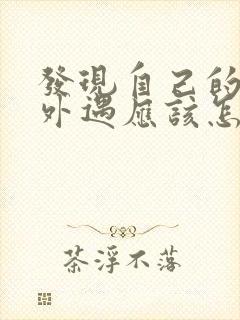 發現自己的
外遇應該怎
茶浮不落